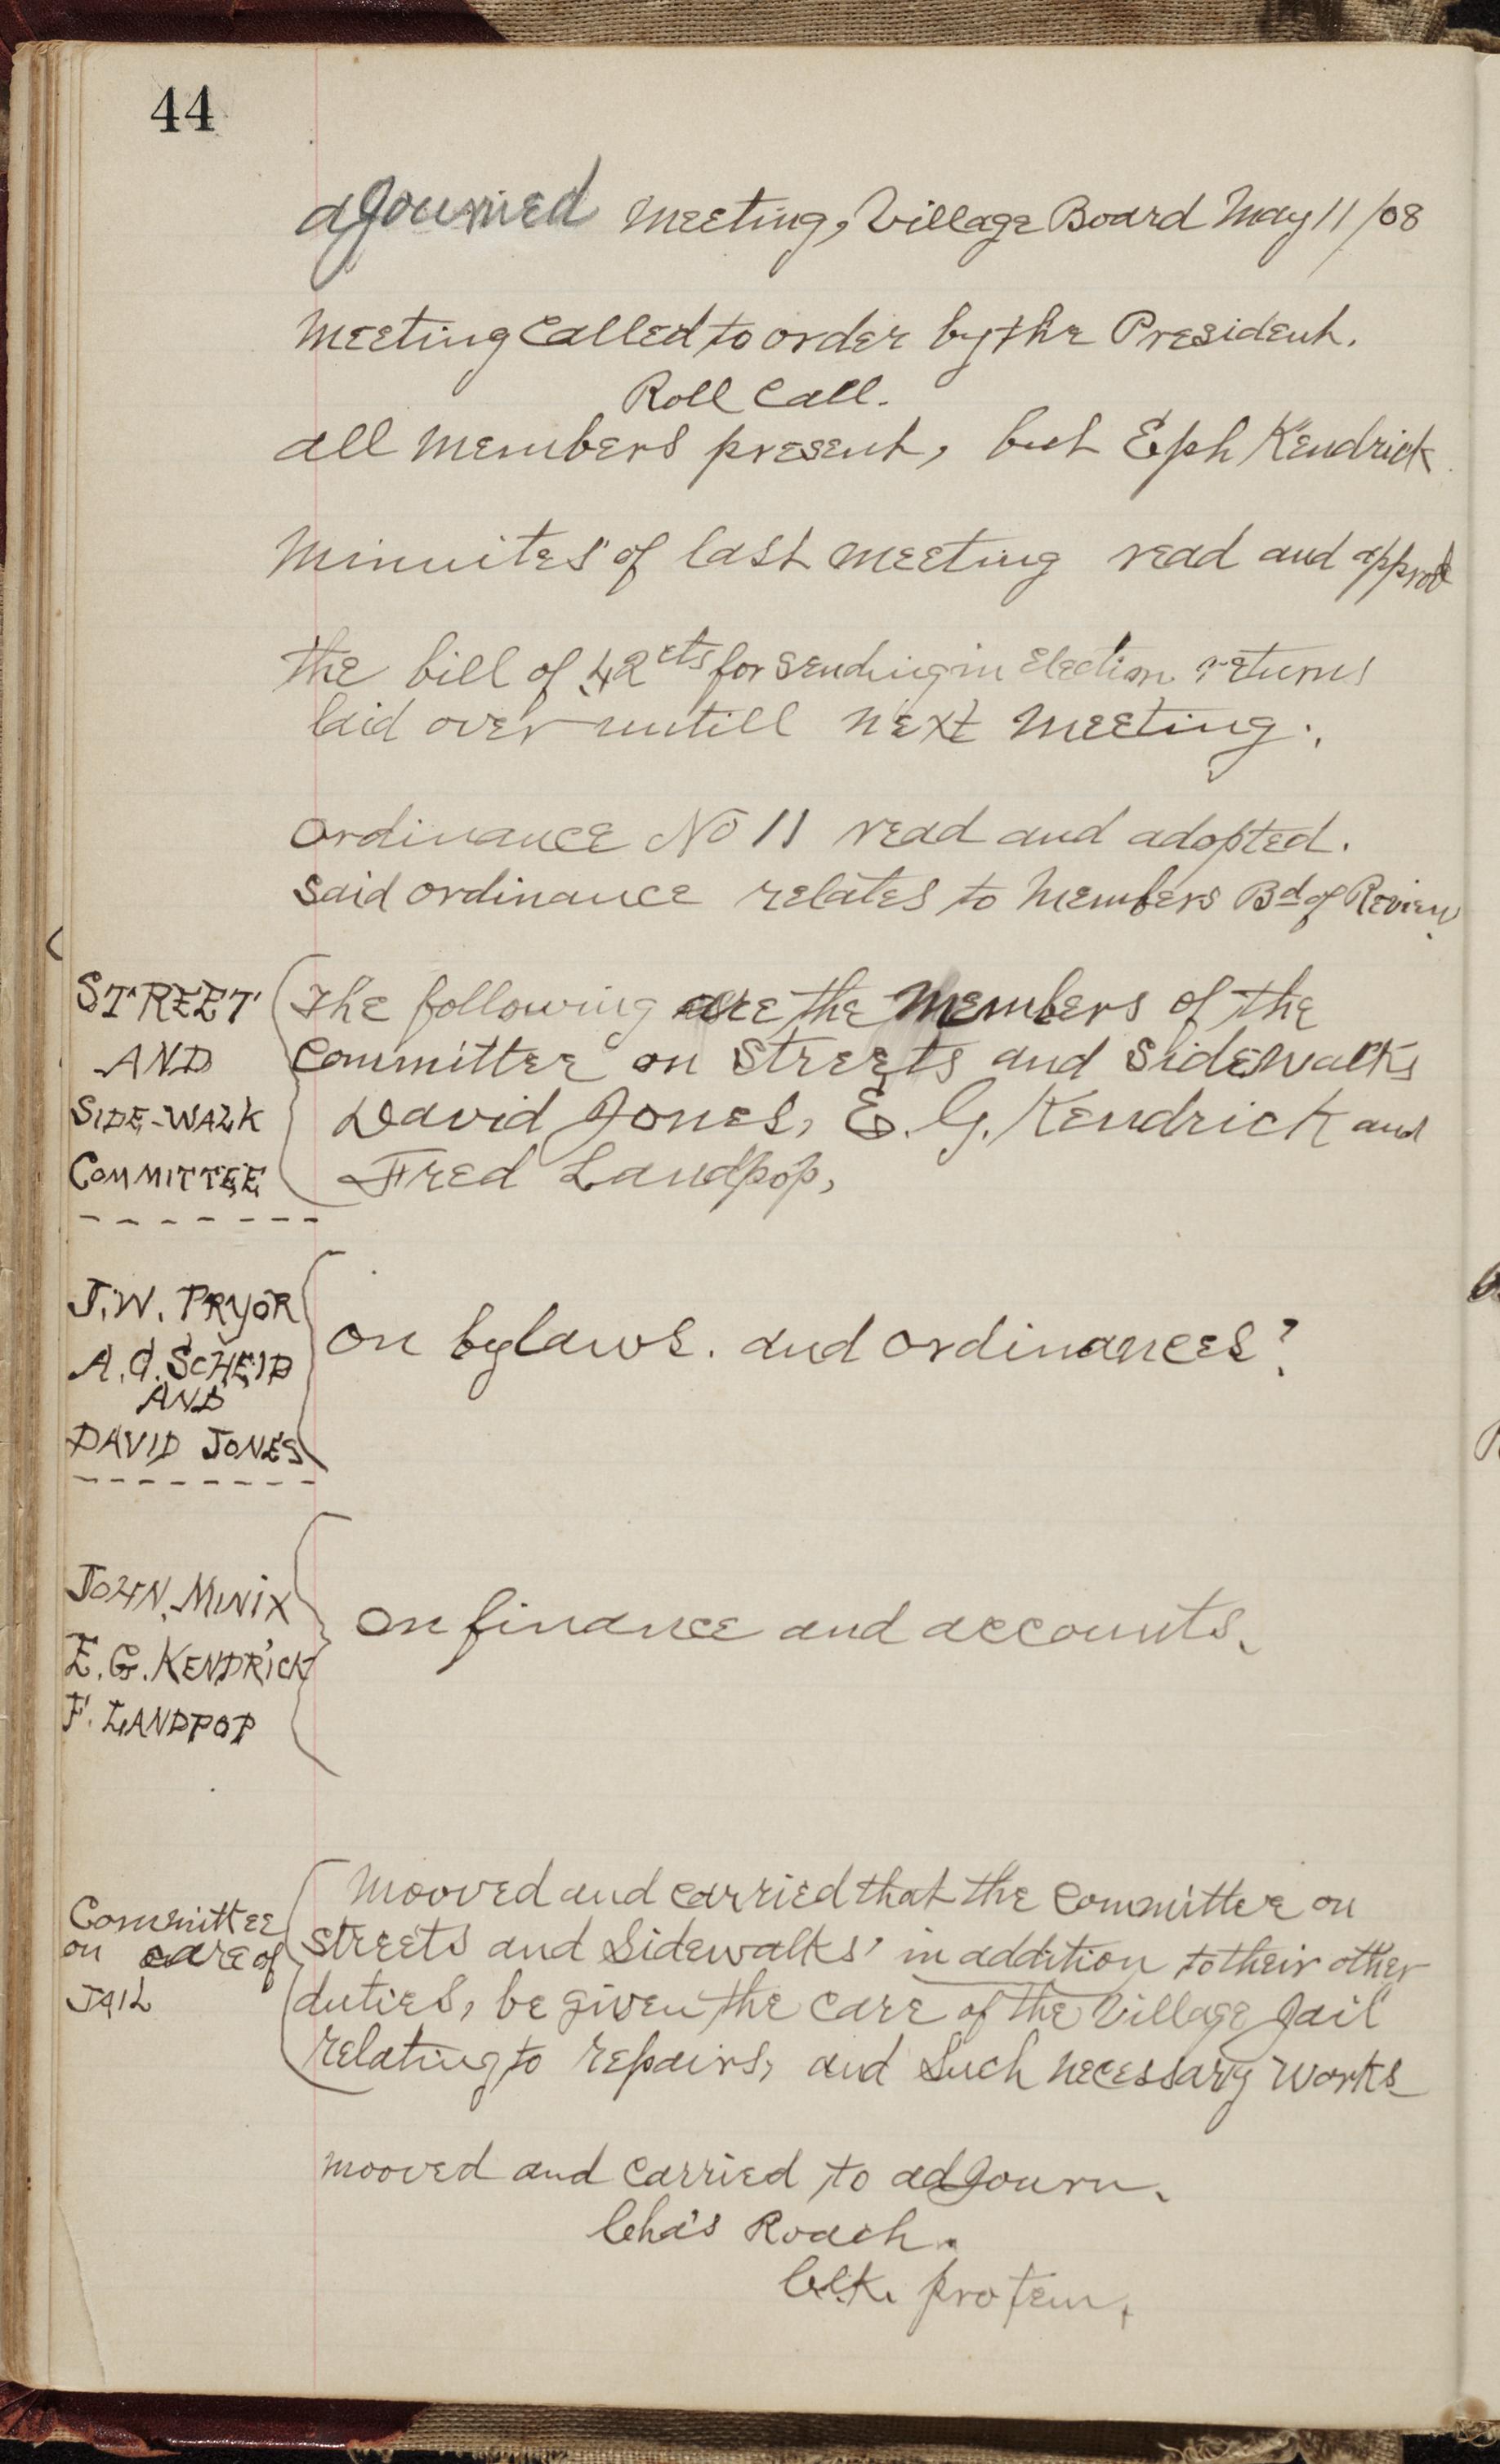 44
adjourned Meeting, Village Board May 11/08
Meeting Called to order by the President.
Roll Call.
all Members present, but Eph Kendrick
Minuites of last Meeting read and approd
the bill of 42 cts for sending in Election returns
laid over untill next Meeting.
ordinance No 11 read and adopted.
Said ordinance relates to Members Bd of Review
STREET
AND
SIDE-WALK
COMMITTEE
The following are the Members of the
Committee on Streets and Sidewalks
David Jones, E. G. Kendrick and
Fred Landpop,
J. W. PRYOR
A. C. SCHEID
AND
DAVID JONES
on bylaws. and ordinances?
JOHN MINIX
E. G. KENDRICK
F. LANDPOP
on finance and accounts.
Committee
on care of
JAIL
Mooved and carried that the Committee on
Streets and Sidewalks' in addition to their other
duties, be given the care of the Village Jail
relating to repairs, and Such necessary Works
mooved and Carried to adjourn.
Cha's Roach.
Clk. protem.